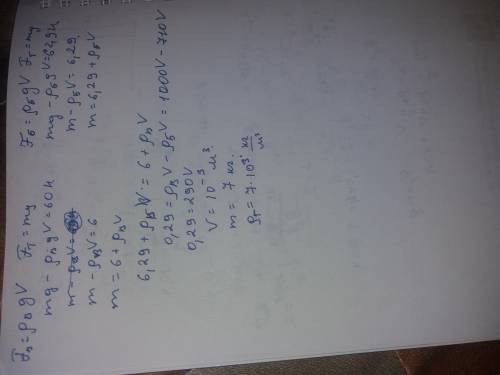 F_в = ρ_в g V   F_т = mg
mg - ρ_в g V = 60 Н
m - ρ_в V = 6
m = 6 + ρ_в V
F_б = ρ_б g V   F_т = mg
mg - ρ_б g V = 62,9 Н
m - ρ_б V = 6,29
m = 6,29 + ρ_б V
6,29 + ρ_б V = 6 + ρ_в V
0,29 = ρ_в V - ρ_б V = 1000V - 710V
0,29 = 290V
V = 10⁻³ м³
m = 7 кг.
ρ_т = 7·10³ кг/м³